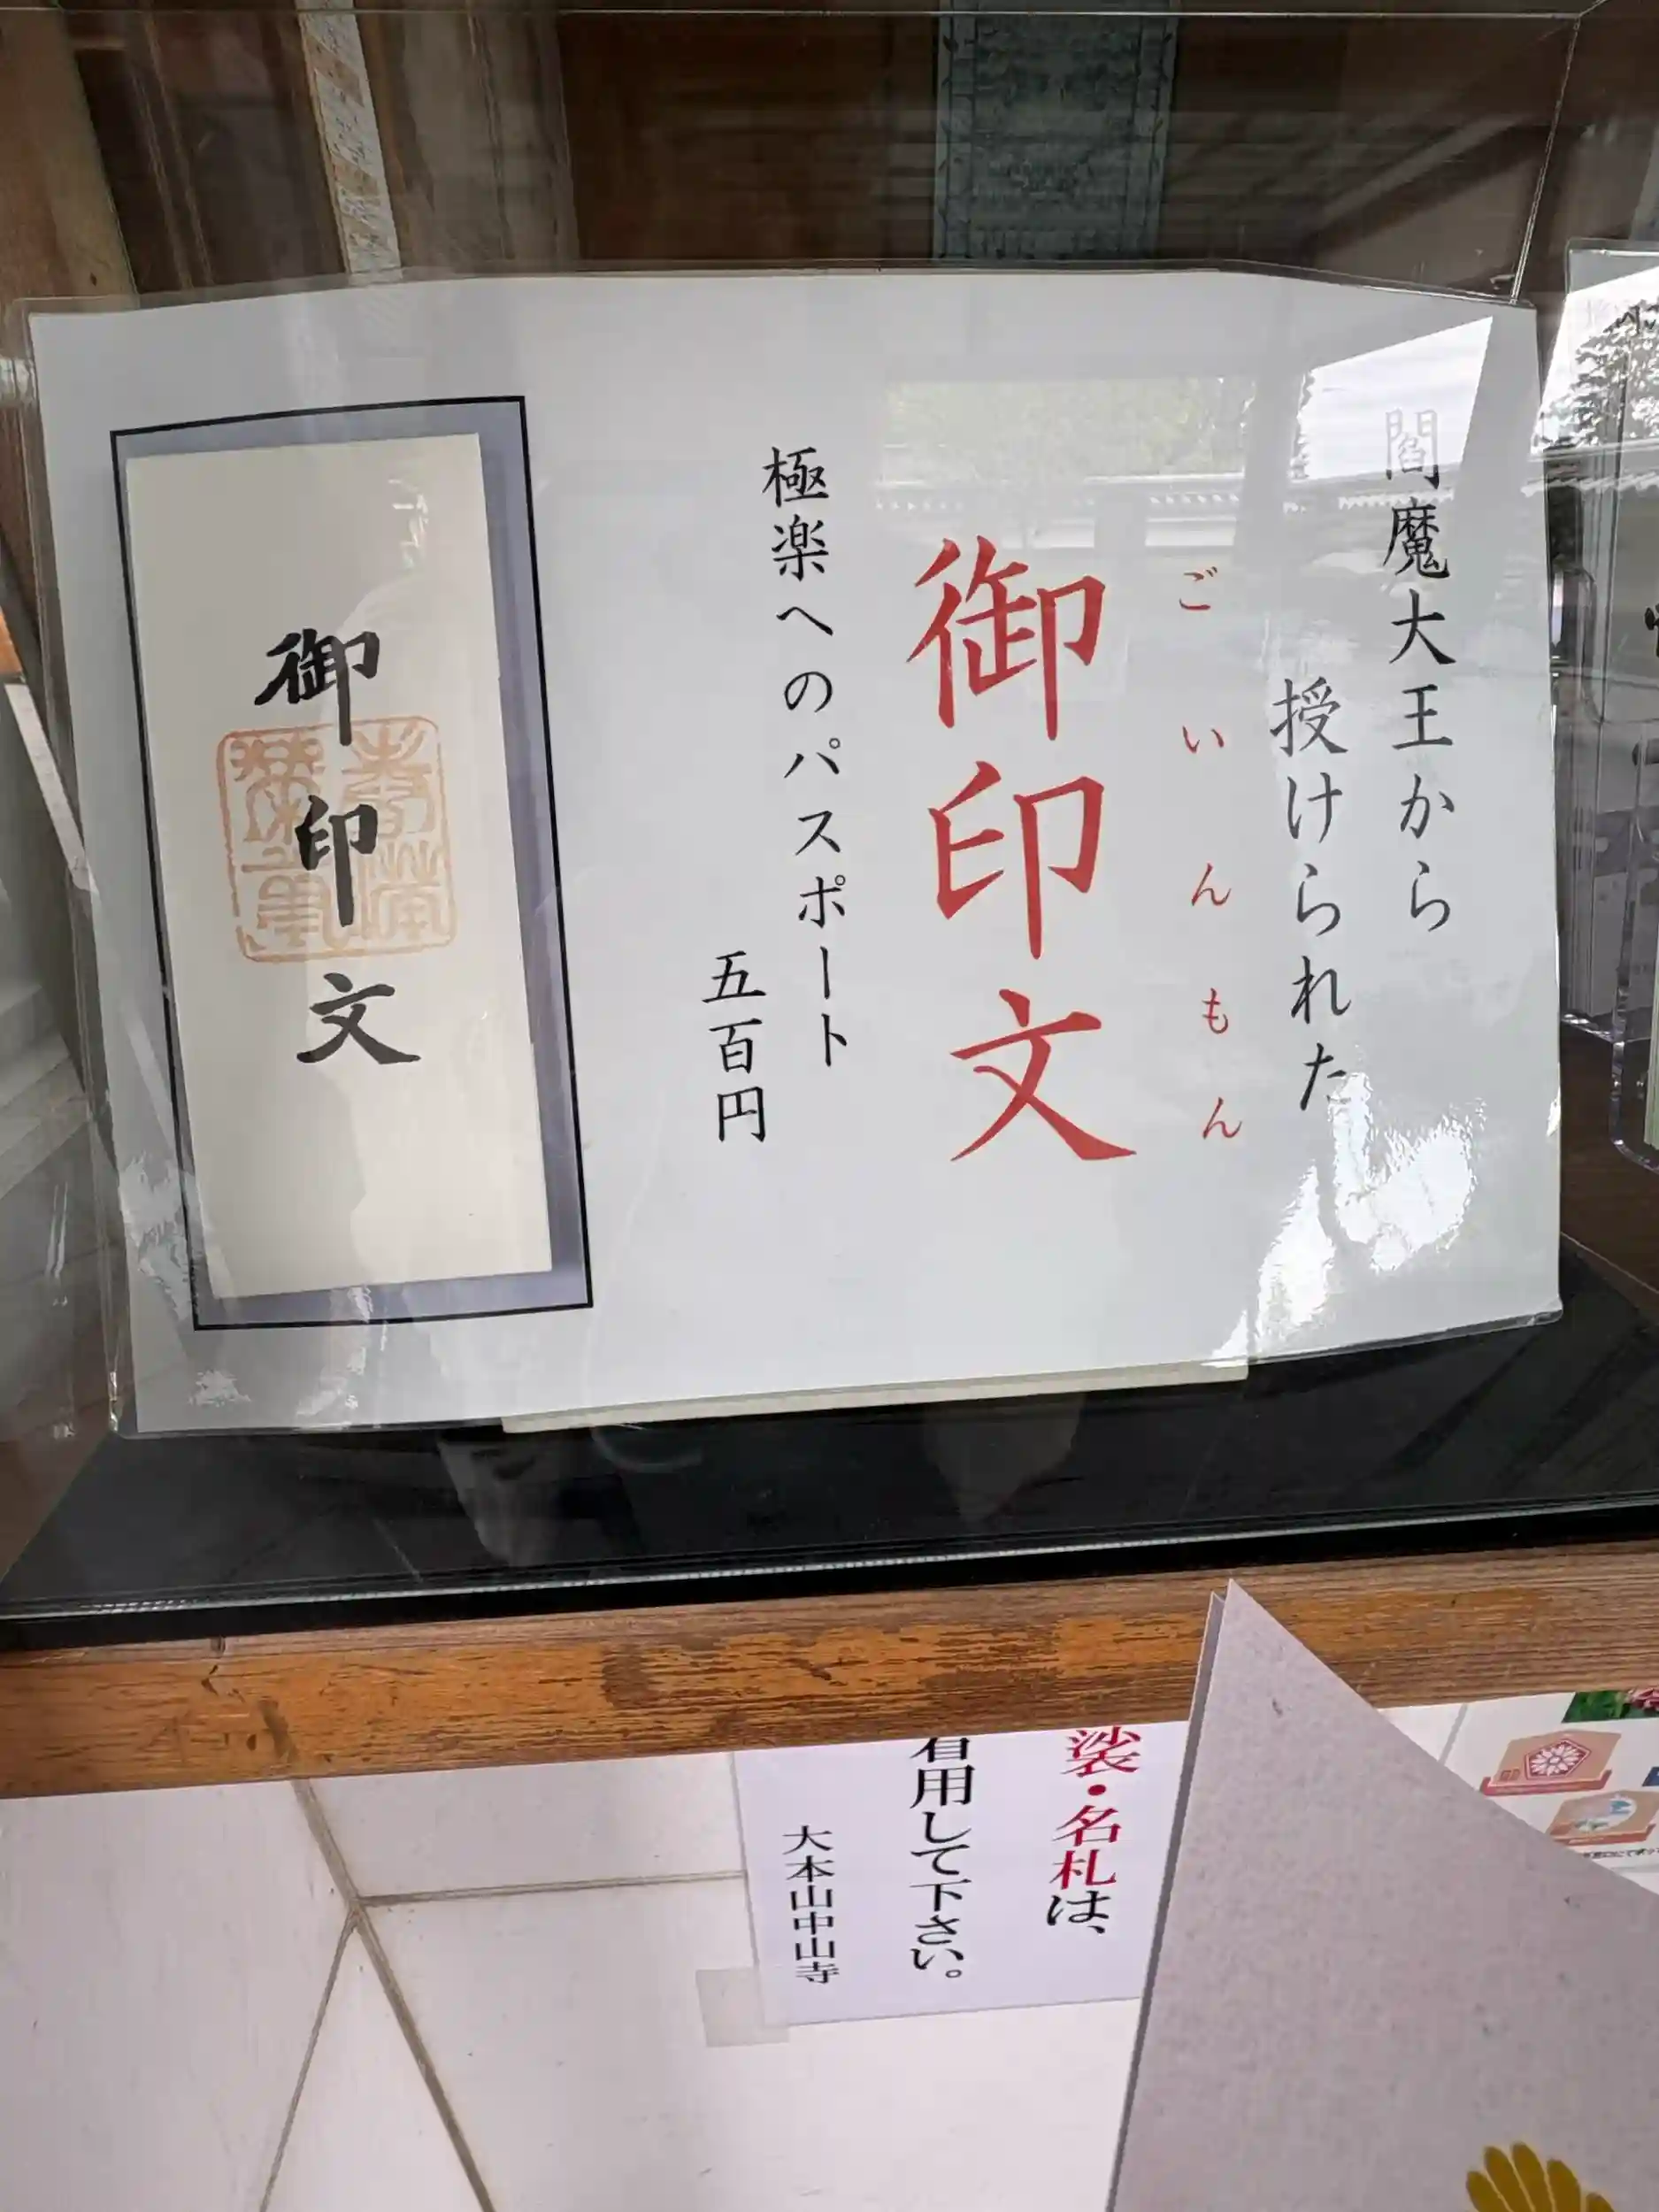 閻魔大王から
授けられた
ごいんもん
御印文
極楽へのパスポート
五百円
御印文
袈・名札は、
着用して下さい。
大本山中山寺